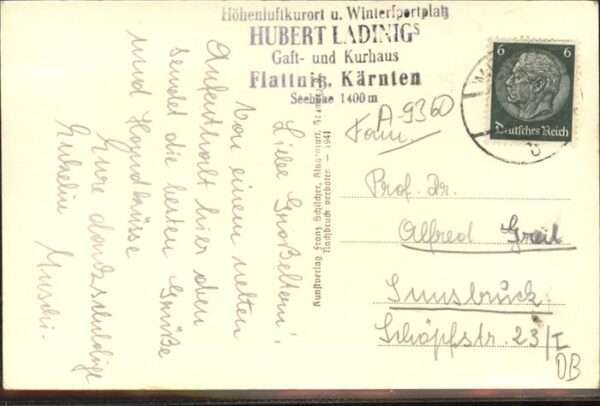 Höhenluftkurort u. Wintersportplatz
HUBERT LADINIGS
Gast- und Kurhaus
Flattnitz, Kärnten
Seehöhe 1400 m
6 6
Deutsches Reich
A-9360
Fam.
Prof. Dr.
Alfred Greil
Innsbruck
Schöpfstr. 23/I
DB
Kunstverlag Franz Schilcher, Klagenfurt,
Nachdruck verboten — 1941
Liebe Großeltern!
Von einem netten
Aufenthalt hier oben
sendet die besten Grüße
und Handküsse
Eure dankschuldige
Enkelin Uschi.